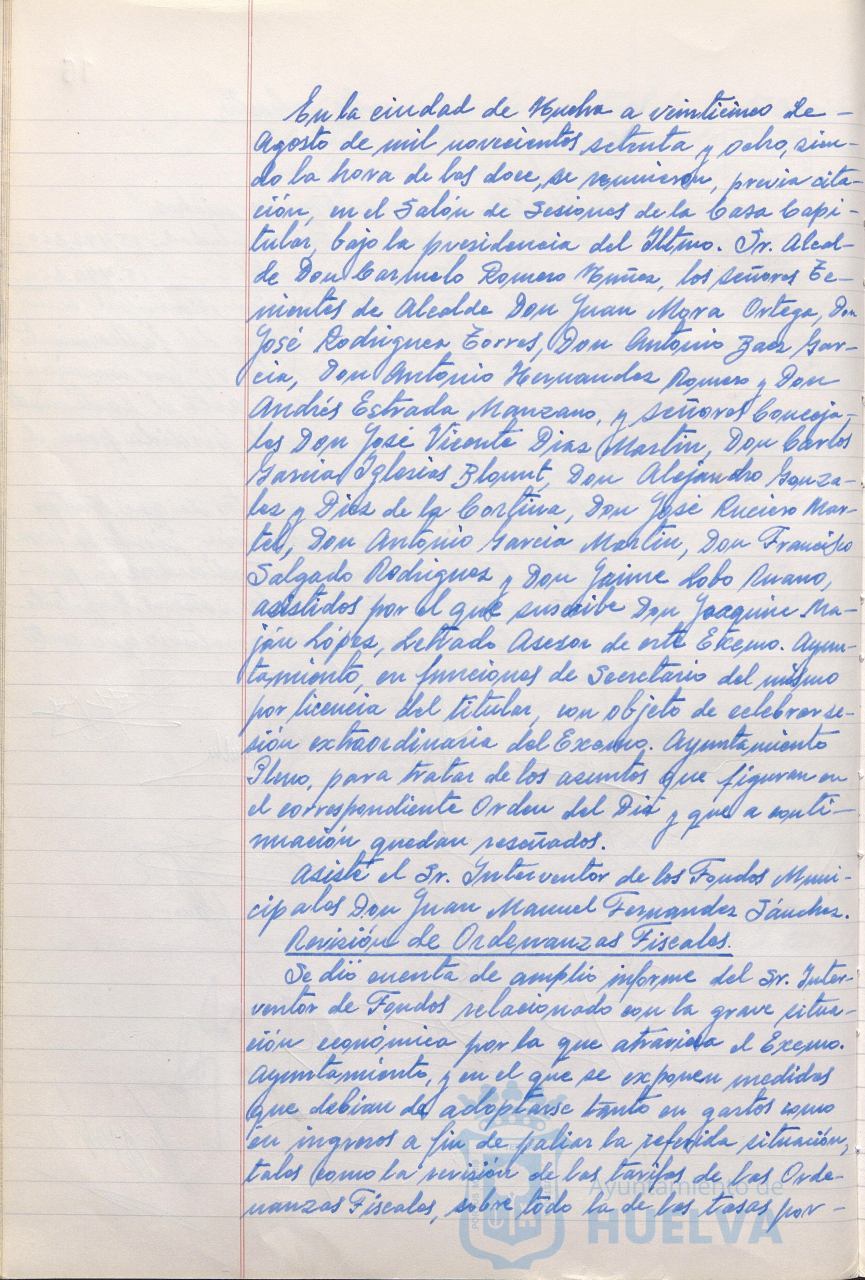 En la ciudad de Huelva a veinticinco de -
Agosto de mil novecientos setenta y ocho, sien-
do la hora de las doce, se reunieron, previa cita-
ción, en el Salón de Sesiones de la Casa Capi-
tular, bajo la presidencia del Iltmo. Sr. Alcal-
de Don Carmelo Romero Nuñez, los señores Te-
nientes de Alcalde Don Juan Mora Ortega, Don
José Rodriguez Torres, Don Antonio Baez Gar-
cia, Don Antonio Hernandez Romero y Don
Andrés Estrada Manzano, y señores Conceja-
les Don José Vicente Diaz Martin, Don Carlos
Garcia Iglesias Blount, Don Alejandro Gonza-
lez y Diez de la Cortina, Don José Ruciero Mar-
tel, Don Antonio Garcia Martin, Don Francisco
Salgado Rodriguez y Don Jaime Lobo Ruano,
asistidos por el que suscribe Don Joaquin Ma-
ján López, Letrado Asesor de este Excmo. Ayun-
tamiento, en funciones de Secretario del mismo
por licencia del titular, con objeto de celebrar se-
sión extraordinaria del Excmo. Ayuntamiento
Pleno, para tratar de los asuntos que figuran en
el correspondiente Orden del Dia y que a conti-
nuación quedan reseñados.
Asiste el Sr. Interventor de los Fondos Muni-
cipales Don Juan Manuel Fernandez Sánchez.
Revisión de Ordenanzas Fiscales.
Se dió cuenta de amplio informe del Sr. Inter-
ventor de Fondos relacionado con la grave situa-
ción económica por la que atraviesa el Excmo.
Ayuntamiento, y en el que se exponen medidas
que debian de adoptarse tanto en gastos como
en ingresos a fin de paliar la referida situación,
tales como la revisión de las tarifas de las Orde-
nanzas Fiscales, sobre todo la de las tasas por -
Ayuntamiento de
HUELVA